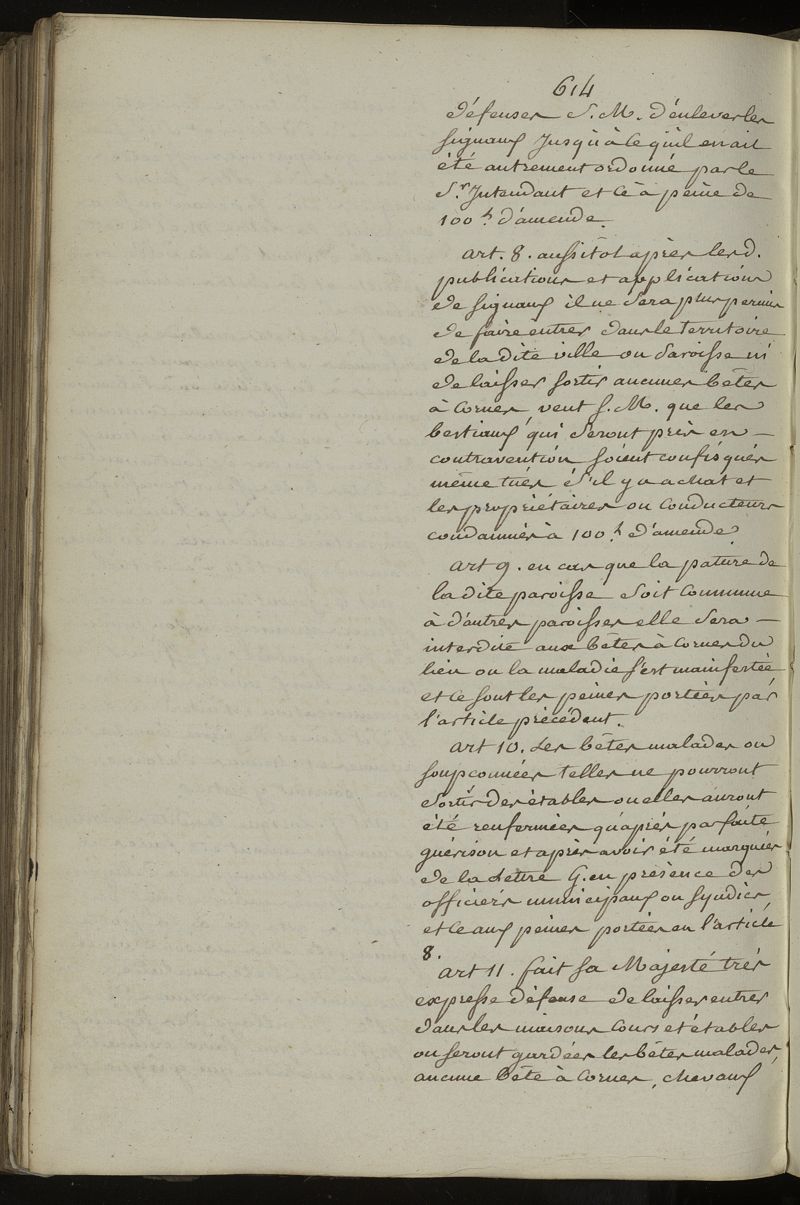 614
défenses S. M. d'enlever les
signaux Jusqu'à ce qu'il en ait
été autrement ordonné par le
S.r Intendant et ce à peine de
100 lt d'amende.
art. 8. aussitôt après les d.
publications et application
de signaux il ne Sera plus permis
de faire entrer dans le territoire
de la dite ville ou Paroisse ni
de laisser sortir aucunes bêtes
à Cornes, veut S. M. que les
bestiaux qui Seront pris en —
contravention soient confisqués
même tués S'il y a achat et
les propriétaires ou Conducteurs
condamnés à 100 lt d'amende.
art 9. en cas que la pature de
la dite paroisse Soit Commune
à d'autres paroisses elle Sera —
interdite aux bêtes à Cornes du
lieu ou la maladie s'est manifestée
et ce sout les peines portées par
l'article précédent.
art 10. Les bêtes malades ou
soupconnées telles ne pourront
Sortir des étables ou elles auront
été renfermées qu'après parfaite
guérison et après avoir été marquées
de la Lettre G. en présence des
officiers municipaux ou Syndics,
et ce aux peines portées en l'article
8.
art 11. fait sa Majesté très
expresse défense de laisser entrer
dans les maisons Cours et étables
ou seront gardées les bêtes malades,
aucune bête à Cornes, chevaux